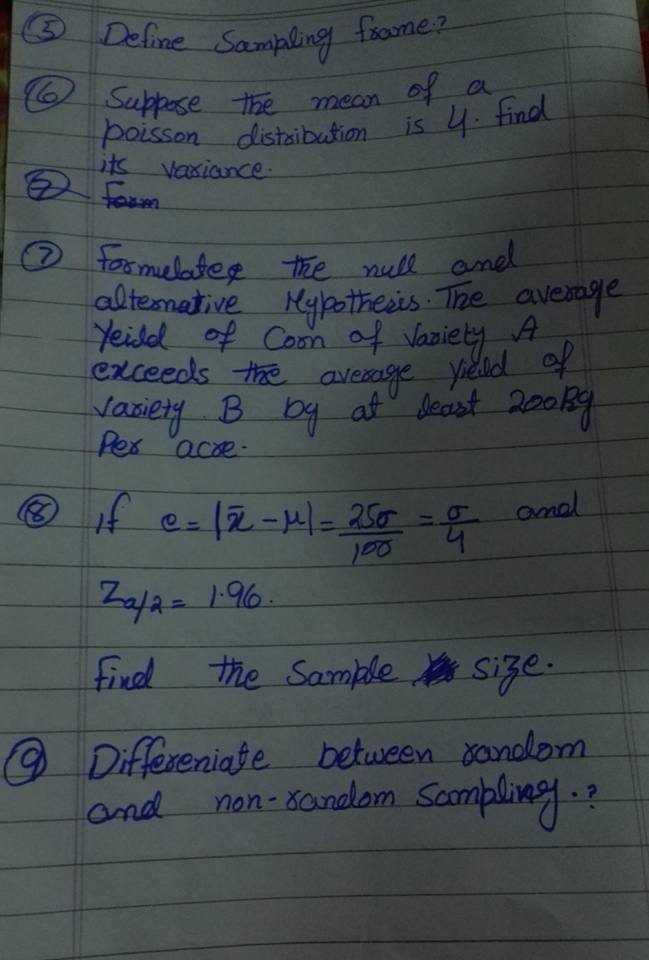 (5) Define Sampling frame?
(6) Suppose the mean of a
poisson distribution is 4. find
its variance.
(7) Form
(7) Formulate the null and
alternative Hypothesis. The average
Yeild of Corn of Variety A
exceeds the average yield of
Variety B by at least 200kg
Per acre.
(8) If e = |x̄ - μ| = 25σ/100 = σ/4 and
Za/2 = 1.96.
Find the Sample size.
(9) Differeniate between random
and non-random sampling.?